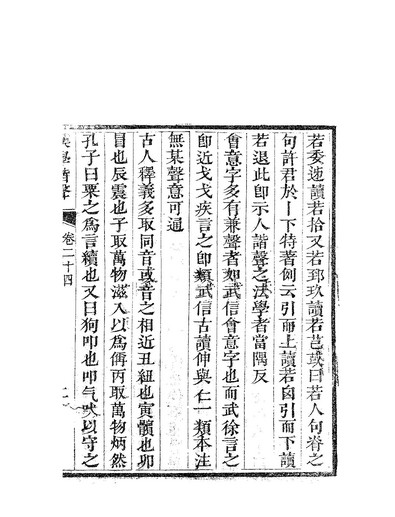 若委遞讀若拾又若郅玖讀若芑或曰若人句脊之
句許君於丨下特著例云引而上讀若囟引而下讀
若退此即示人諧聲之法學者當隅反
會意字多有兼聲者如武信會意字也而武徐言之
即近戈戈疾言之即類武信古讀伸與仁一類本注
無某聲意可通
古人釋義多取同音或音之相近丑紐也寅髕也卯
冒也辰震也子取萬物滋入以為偁丙取萬物炳然
孔子曰粟之為言續也又曰狗叩也叩气吠以守之
卷二十四